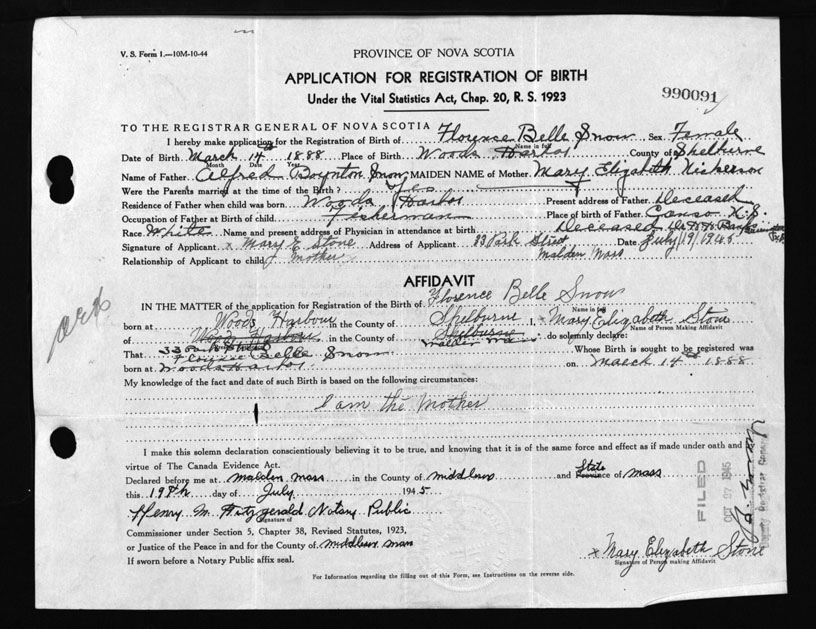 V. S. Form 1.—10M-10-44
PROVINCE OF NOVA SCOTIA
APPLICATION FOR REGISTRATION OF BIRTH
Under the Vital Statistics Act, Chap. 20, R. S. 1923
990091
TO THE REGISTRAR GENERAL OF NOVA SCOTIA
I hereby make application for the Registration of Birth of Florence Belle Snow Sex Female
Name in full
Date of Birth March 14th 1888 Place of Birth Woods Harbor County of Shelburne
Month Date Year
Name of Father Alfred Boynton Snow MAIDEN NAME of Mother Mary Elizabeth Nickerson
Were the Parents married at time of the Birth? Yes
Residence of Father when child was born Woods Harbor Present address of Father Deceased
Occupation of Father at Birth of child Fisherman Place of birth of Father Canso N.S.
Race White Name and present address of Physician in attendance at birth Deceased
Signature of Applicant x Mary E Stone Address of Applicant 33 Park Street Date July 19/1945
Malden Mass
Relationship of Applicant to child Mother
AFFIDAVIT
IN THE MATTER of the application for Registration of the Birth of Florence Belle Snow
Name in full
born at Woods Harbour in the County of Shelburne I, x Mary Elizabeth Stone
Name of Person Making Affidavit
of Woods Harbour in the County of Shelburne do solemnly declare:
33 Park Street Malden Mass
That Florence Belle Snow Whose Birth is sought to be registered was
born at Woods Harbor on March 14th 1888
My knowledge of the fact and date of such Birth is based on the following circumstances:
I am the Mother
I make this solemn declaration conscientiously believing it to be true, and knowing that it is of the same force and effect as if made under oath and by
virtue of The Canada Evidence Act.
Declared before me at Malden Mass in the County of Middlesex and State Province of Mass
this 19th day of July 1945
Henry M. Fitzgerald Notary Public
Signature of
Commissioner under Section 5, Chapter 38, Revised Statutes, 1923,
or Justice of the Peace in and for the County of Middlesex Mass
If sworn before a Notary Public affix seal.
x Mary Elizabeth Stone
Signature of Person making Affidavit
For Information regarding the filling out of this Form, see Instructions on the reverse side.
FILED
OCT 27 1945
Deputy Registrar General